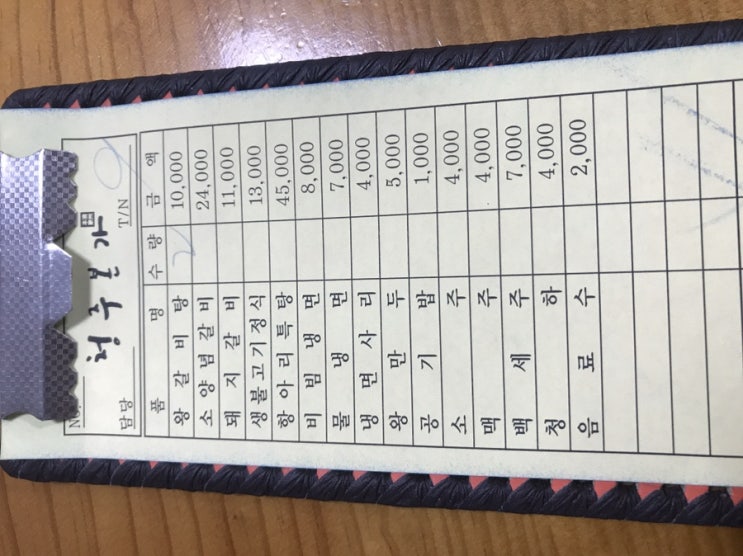 No.
청주본가
담당 T/N 9
품 명 수 량 금 액
왕 갈 비 탕 2 10,000
소 양 념 갈 비 24,000
돼 지 갈 비 11,000
생불고기정식 13,000
항 아 리 특 탕 45,000
비 빔 냉 면 8,000
물 냉 면 7,000
냉 면 사 리 4,000
왕 만 두 5,000
공 기 밥 1,000
소 주 4,000
맥 주 4,000
백 세 주 7,000
청 하 4,000
음 료 수 2,000